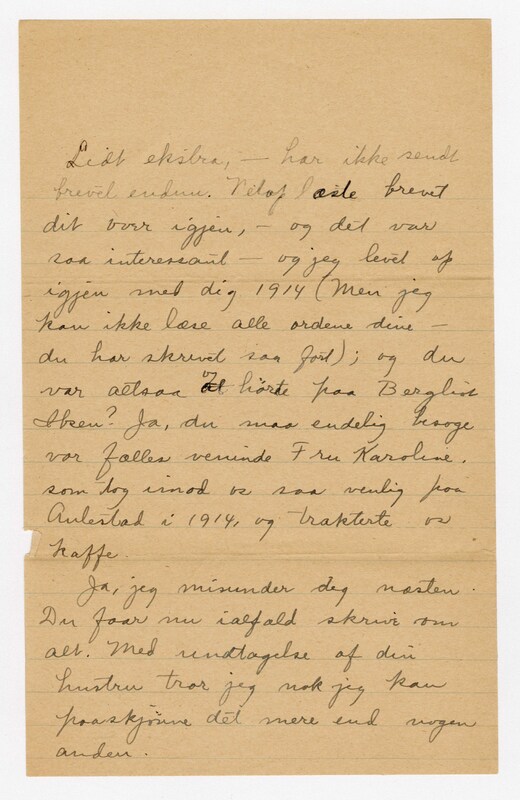 Lidt ekstra, — har ikke sendt
brevet endnu. Netop læste brevet
dit over igjen, — og det var
saa interessant — og jeg levet op
igjen med dig 1914 (Men jeg
kan ikke læse alle ordene dine —
du har skrevet saa fort); og du
var altsaa og hørte paa Bergliot
Ibsen? Ja, du maa endelig besøge
vor fælles veninde Fru Karoline,
som tog imod os saa venlig paa
Aulestad i 1914, og trakterte os
kaffe.
Ja, jeg misunder deg næsten.
Du faar nu ialfald skrive om
alt. Med undtagelse af din
hustru tror jeg nok jeg kan
paaskjønne det mere end nogen
anden.